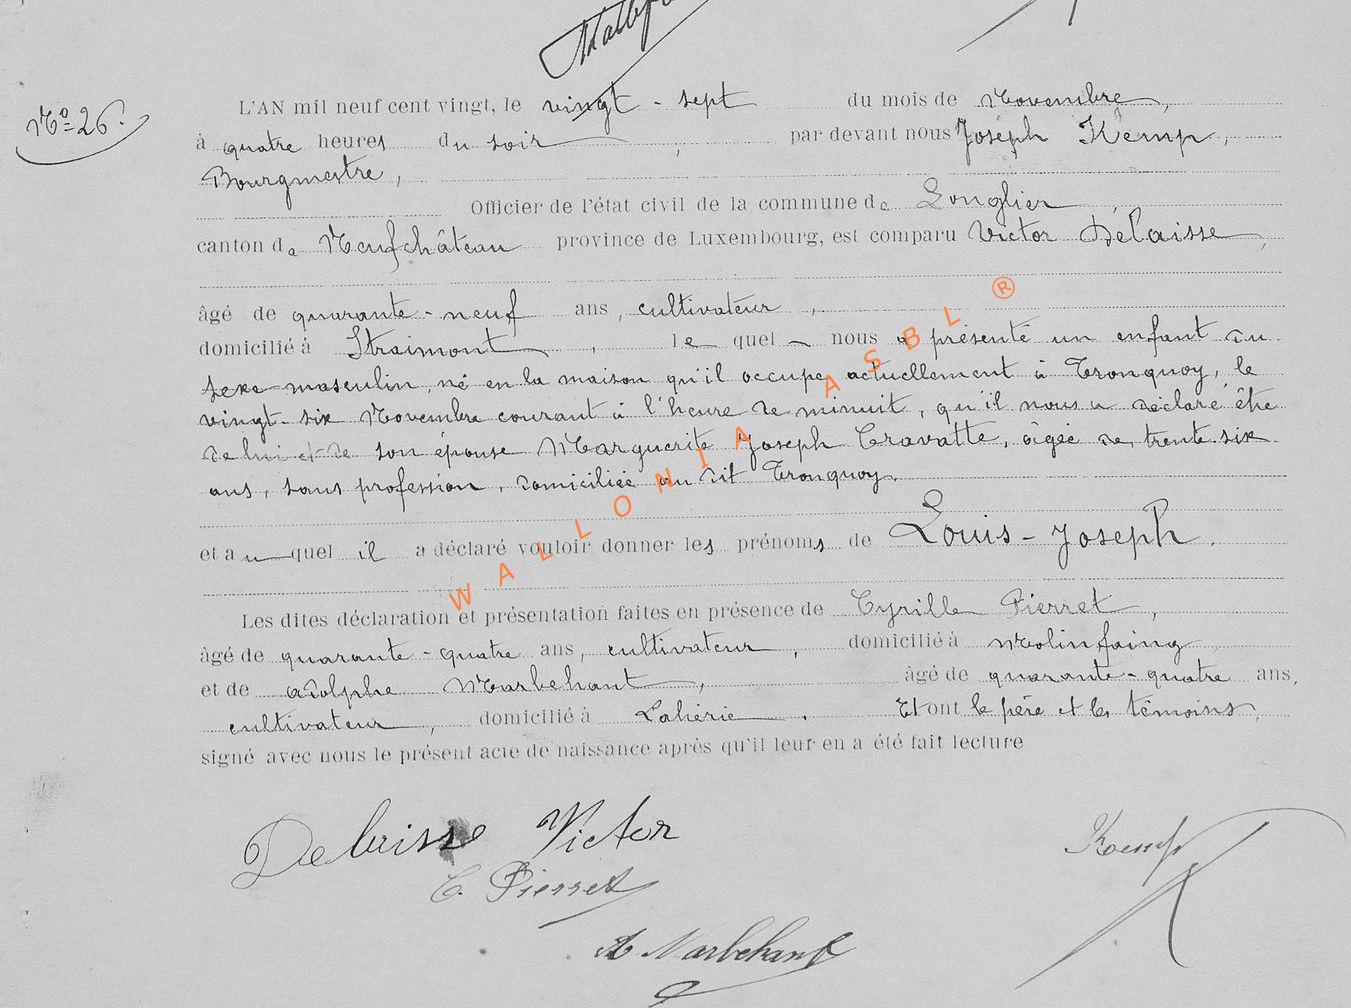 Nº 26.
L'AN mil neuf cent vingt, le vingt-sept du mois de Novembre,
à quatre heures du soir, par devant nous Joseph Kemp,
Bourgmestre,
Officier de l'état civil de la commune de Longlier,
canton de Neufchâteau province de Luxembourg, est comparu Victor Delaisse,
âgé de quarante-neuf ans, cultivateur,
domicilié à Straimont, lequel nous a présenté un enfant du
sexe masculin, né en la maison qu'il occupe actuellement à Tronquoy, le
vingt-six Novembre courant à l'heure de minuit, qu'il nous a déclaré être
de lui et de son épouse Marguerite Joseph Cravatte, âgée de trente-six
ans, sans profession, domiciliée au dit Tronquoy.
et auquel il a déclaré vouloir donner les prénoms de Louis-Joseph.
Les dites déclaration et présentation faites en présence de Cyrille Pierret,
âgé de quarante-quatre ans, cultivateur, domicilié à Molinfaing
et de Adolphe Marbehant, âgé de quarante-quatre ans,
cultivateur, domicilié à Lahérie. Et ont le père et les témoins,
signé avec nous le présent acte de naissance après qu'il leur en a été fait lecture
WALLONIA ASBL ®
Delaisse Victor
C. Pierret
Kemp
A Marbehant